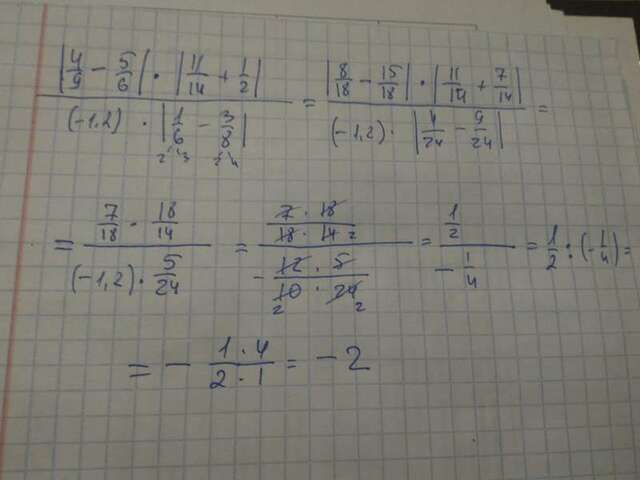 |4/9 − 5/6| · |11/14 + 1/2| / (−1,2) · |1/6 − 3/8| = |8/18 − 15/18| · |11/14 + 7/14| / (−1,2) · |4/24 − 9/24| =
= 7/18 · 18/14 / (−1,2) · 5/24 = 7 · 18 / 18 · 14 2 / − 12 · 5 / 10 · 24 2 2 = 1/2 / − 1/4 = 1/2 : (− 1/4) =
= − 1 · 4 / 2 · 1 = − 2